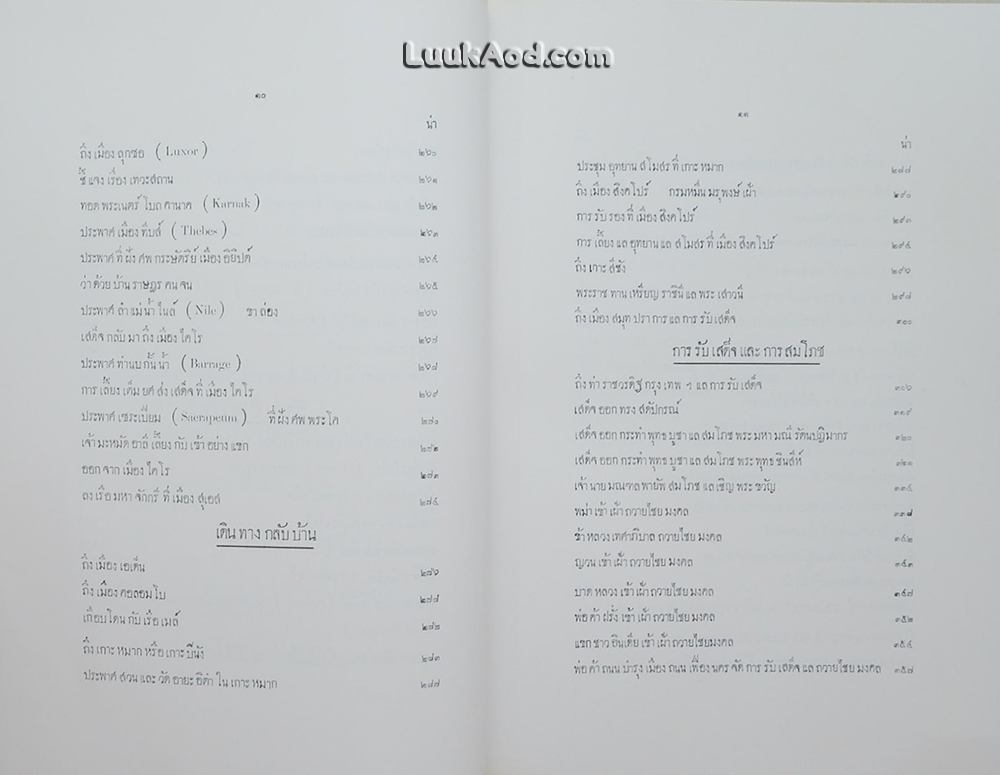 LuukAod.com
๑๐
น่า
ถึง เมือง ลุกซอ (Luxor) ๒๖๐
ชี้ แจง เรื่อง เทวะสถาน ๒๖๑
ทอด พระเนตร์ โบถ คานาค (Karnak) ๒๖๒
ประพาศ เมือง ทีบส์ (Thebes) ๒๖๓
ประพาศ ที่ ฝั่ง ศพ กระษัตริย์ เมือง อิยิปต์ ๒๖๔
ว่า ด้วย บ้าน ราษฎร คน จน ๒๖๕
ประพาศ ลำ แม่ น้ำ ไนล์ (Nile) ขา ล่อง ๒๖๖
เสด็จ กลับ มา ถึง เมือง ไคโร ๒๖๗
ประพาศ ทำนบ กั้น น้ำ (Barrage) ๒๖๘
การ เลี้ยง เต็ม ยศ ส่ง เสด็จ ที่ เมือง ไคโร ๒๖๙
ประพาศ เซระเปียม (Saerapeum) ที่ ฝั่ง ศพ พระโค ๒๗๑
เจ้า มะหมัด อาลี เลี้ยง กับ เข้า อย่าง แขก ๒๗๒
ออก จาก เมือง ไคโร ๒๗๓
ลง เรือ มหา จักกรี ที่ เมือง สุเอส ๒๗๔
เดิน ทาง กลับ บ้าน
ถึง เมือง เอเด็น ๒๗๖
ถึง เมือง คอลอมโบ ๒๗๘
เกือบ โดน กับ เรือ เมล์
ถึง เกาะ หมาก หรือ เกาะ ปีนัง ๒๘๓
ประพาศ สวน และ วัด อายะ อิตำ ใน เกาะ หมาก
๑๑
น่า
ประชุม อุทยาน สโมสร ที่ เกาะ หมาก ๒๘๗
ถึง เมือง สิงคโปร์ กรมหมื่น มรุพงษ์ เฝ้า ๒๙๐
การ รับ รอง ที่ เมือง สิงคโปร์ ๒๙๓
การ เลี้ยง แล อุทยาน แล สโมสร ที่ เมือง สิงคโปร์ ๒๙๔
ถึง เกาะ สีชัง ๒๙๖
พระราช ทาน เหรียญ ราชินี แล พระ เสาวนี ๒๙๘
ถึง เมือง สมุท ปราการ แล การ รับ เสด็จ ๓๐๐
การ รับ เสด็จ และ การ สมโภช
ถึง ท่า ราชวรดิฐ กรุง เทพ ฯ แล การ รับ เสด็จ ๓๐๖
เสด็จ ออก ทรง สดัปกรณ์ ๓๑๙
เสด็จ ออก กระทำ พุทธ บูชา แล สมโภช พระ มหา มณี รัตนปฏิมากร ๓๒๐
เสด็จ ออก กระทำ พุทธ บูชา แล สมโภช พระ พุทธ ชินสีห์ ๓๒๑
เจ้า นาย มณฑล พายัพ สมโภช แล เชิญ พระ ขวัญ ๓๓๔
พม่า เข้า เฝ้า ถวายไชย มงคล ๓๓๘
ข้า หลวง เทศาภิบาล ถวายไชย มงคล ๓๔๒
ญวน เข้า เฝ้า ถวายไชย มงคล ๓๔๓
บาด หลวง เข้า เฝ้า ถวายไชย มงคล ๓๔๗
พ่อ ค้า ฝรั่ง เข้า เฝ้า ถวายไชย มงคล ๓๕๒
แขก ชาว อินเดีย เข้า เฝ้า ถวายไชยมงคล ๓๕๔
พ่อ ค้า ถนน บำรุง เมือง ถนน เฟื่อง นคร จัด การ รับ เสด็จ แล ถวายไชย มงคล ๓๕๗